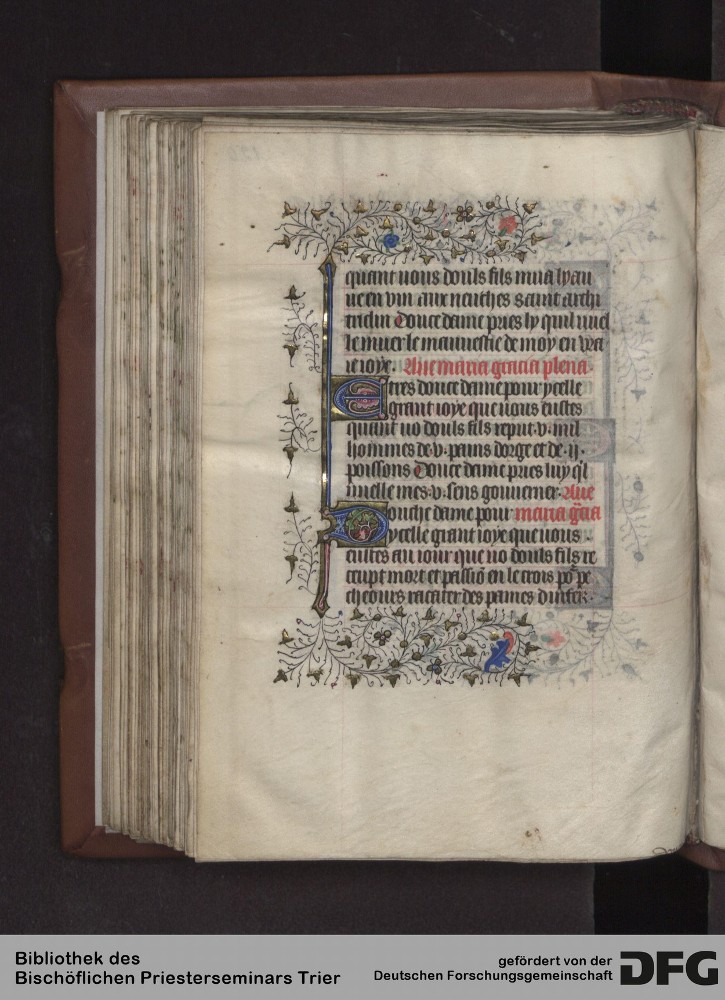 quant uous douls fils mua lyau
ue en vin aux neuches saint archi
triclin Douce dame pries ly quil uuel
le muer le mauuestie de moy en vra
ie ioye. Aue maria gracia plena.
E tres douce dame pour ycelle
grant ioye que uous eustes
quant uo douls fils reput .v. mil
hommes de .v. pains dorge et de .ij.
poissons Douce dame pries luy q'l
uuelle mes .v. sens gouuerner. Aue
Douche dame pour maria gr̄cia
ycelle grant ioye que uous
eustes au iour que uo douls fils re
ceupt mort et passiō en le crois po² pe
cheours racater des paines dinfer.
Bibliothek des
Bischöflichen Priesterseminars Trier
gefördert von der
Deutschen Forschungsgemeinschaft
DFG